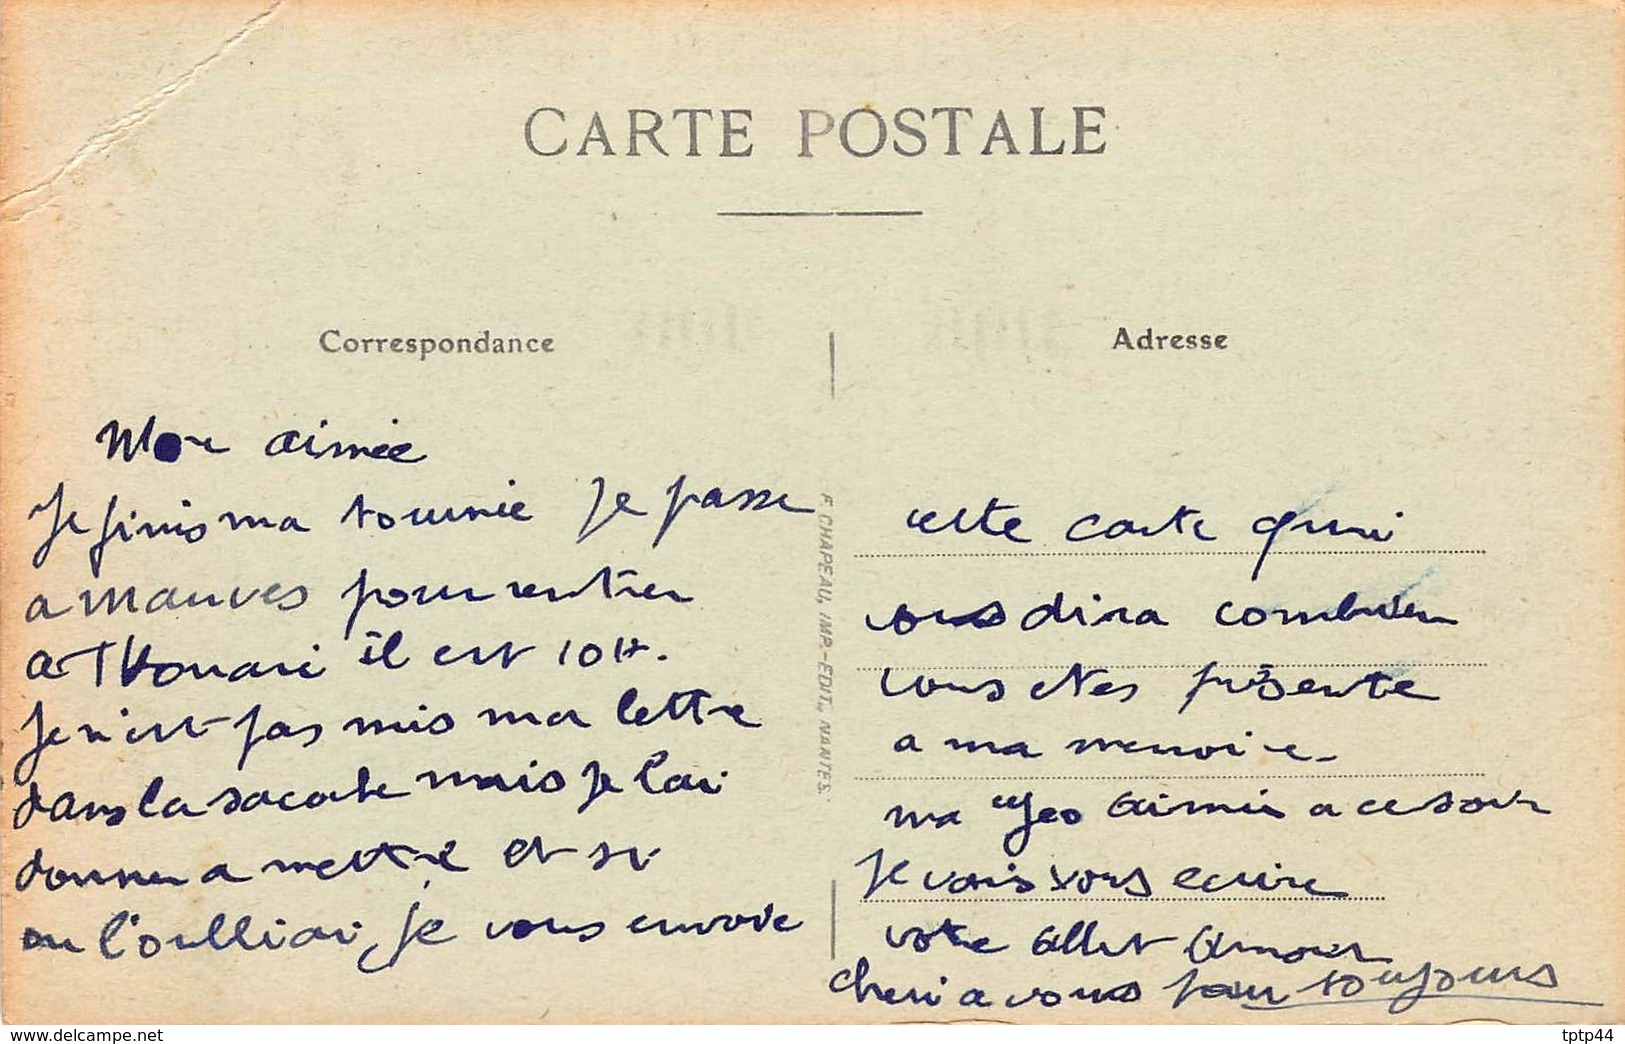 CARTE POSTALE
Correspondance
Mon aimée
Je finis ma tournée Je passe
a Mauves pour rentrer
a Thouaré il est 10 H.
Je n'est pas mis ma lettre
dans la sacoche mais je l'ai
donner a mettre et si
on l'oulliai je vous envoie
F. CHAPEAU, IMP.-EDIT., NANTES.
Adresse
cette carte qui
vous dira combien
vous etes présente
a ma memoire
ma Geo aimée a ce soir
Je vais vous ecrire
votre Amour
cheri a vous pour toujours
delcampe.net
tptp44